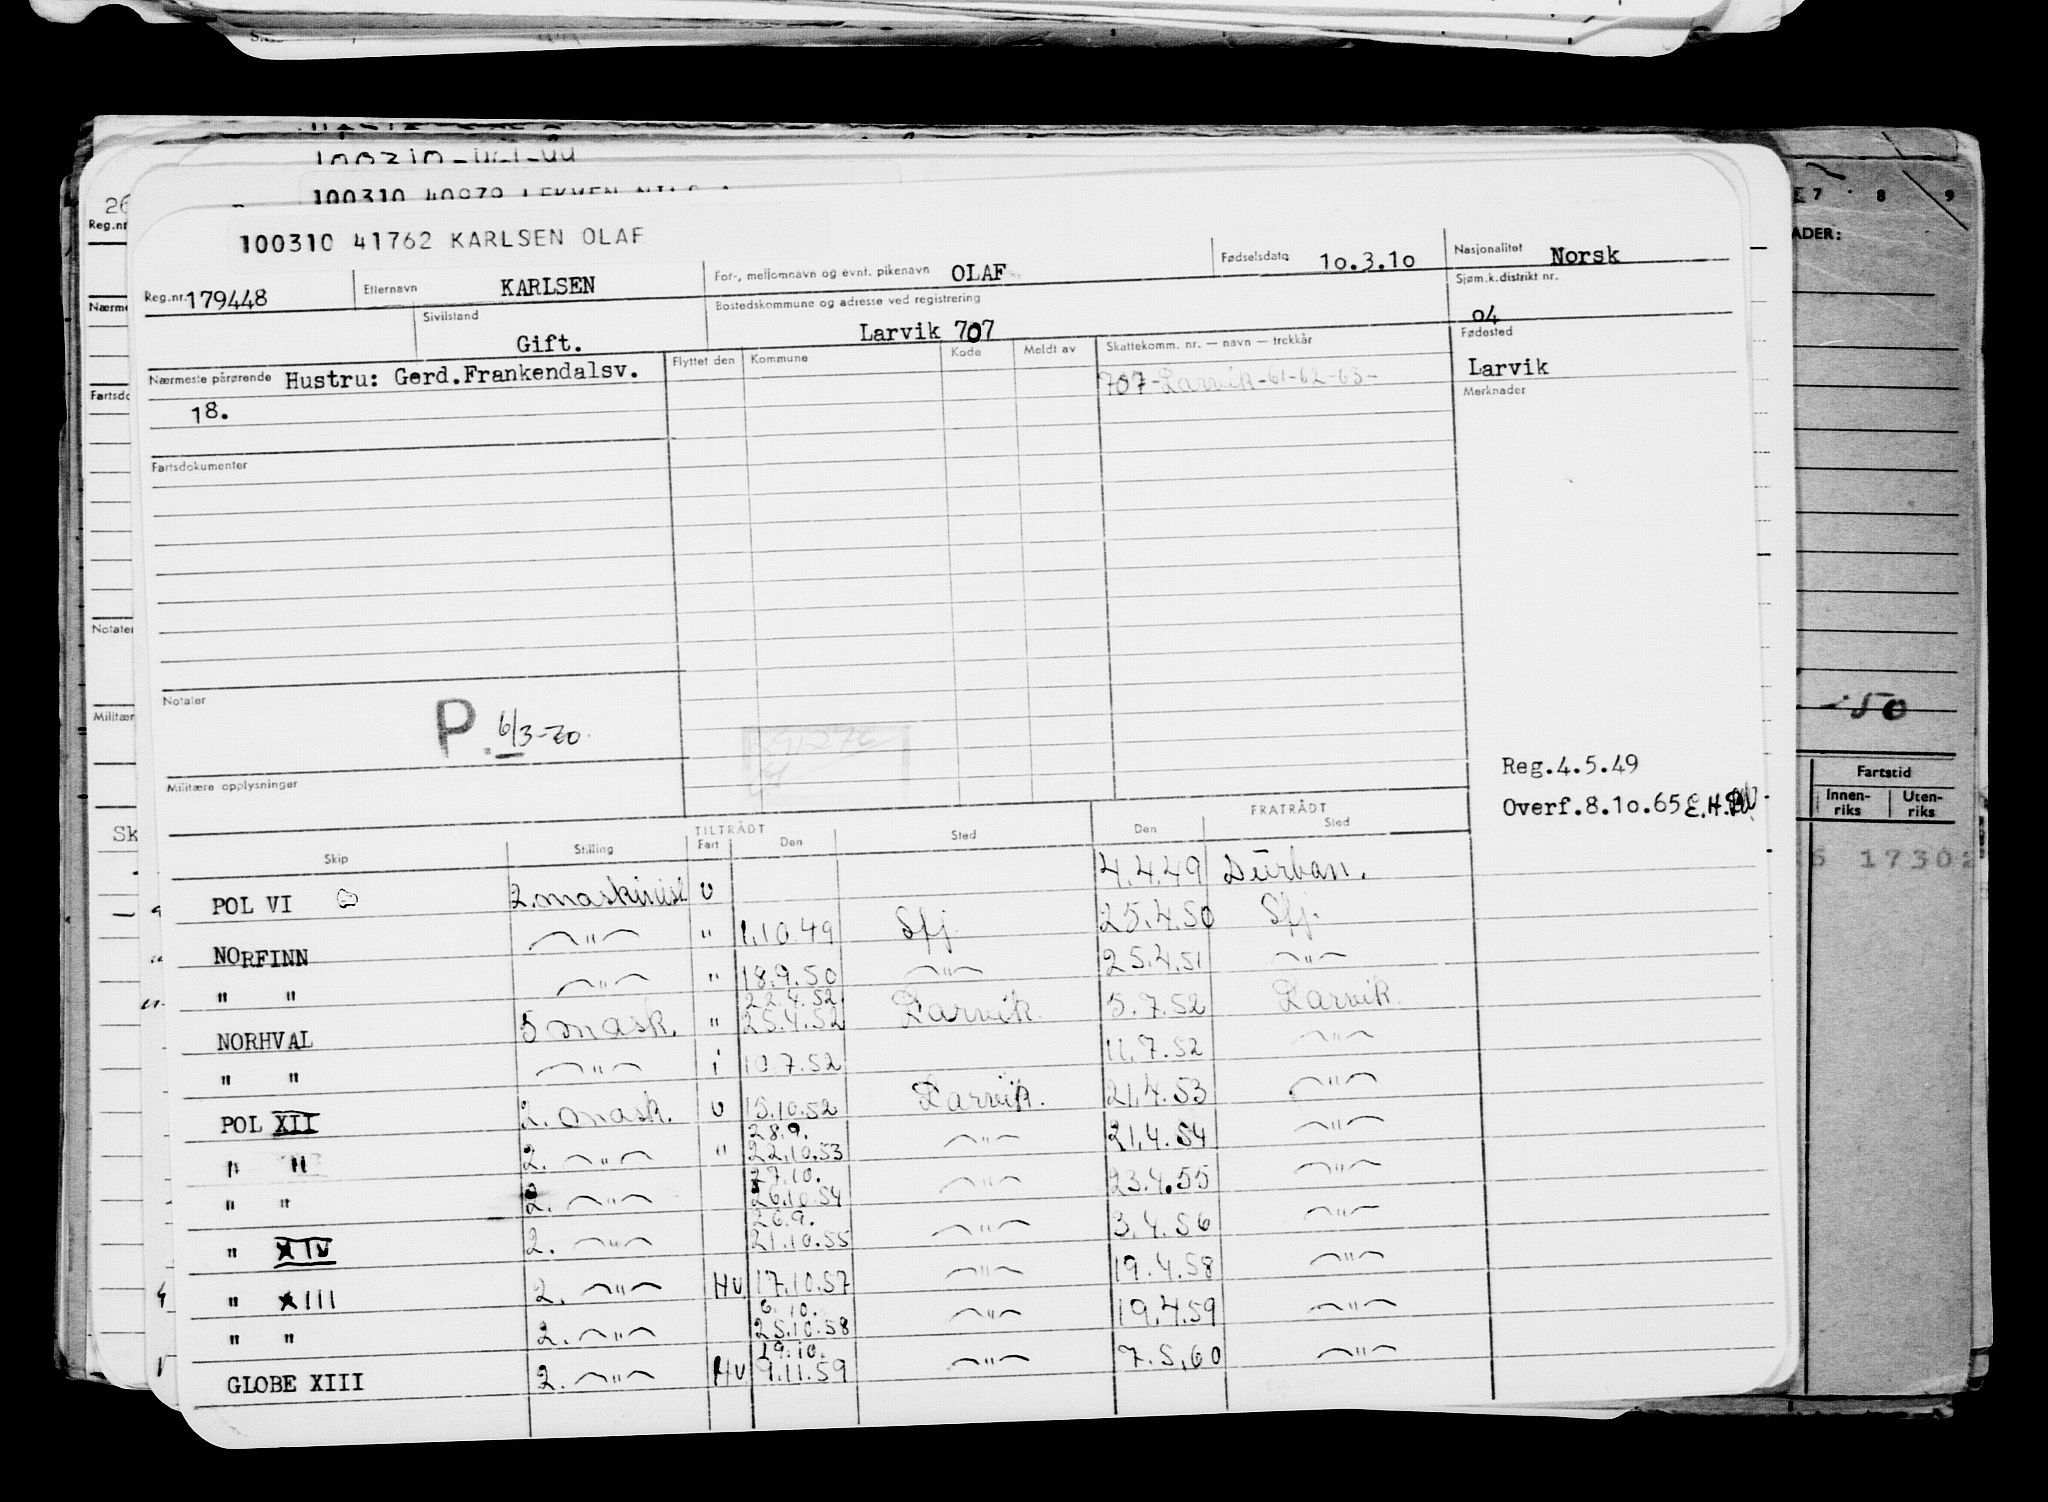 100310 41762 KARLSEN OLAF
Reg.nr. 179448 Etternavn KARLSEN For-, mellomnavn og evnt. pikenavn OLAF Fødselsdato 10.3.10 Nasjonalitet Norsk
Sivilstand Gift. Bostedskommune og adresse ved registrering Larvik 707 Sjøm.k.distrikt nr. 04
Nærmeste pårørende Hustru: Gerd.Frankendalsv. Flyttet den Kommune Kode Meldt av Skattekomm. nr. — navn — trekkår Fødested
18. 707-Larvik-61-62-63- Larvik
Merknader
Fartsdokumenter
Notater
P. 6/3-70.
Militære opplysninger
Reg.4.5.49
Overf.8.10.65 E.H.
TILTRÅDT FRATRÅDT
Skip Stilling Fart Den Sted Den Sted
POL VI 2.maskinist U 4.4.49 Durban.
NORFINN —"— " 1.10.49 Sfj. 25.4.50 Sfj.
" " —"— " 18.9.50 —"— 25.4.51 —"—
22.4.52
NORHVAL 5 mask. " 25.4.52 Larvik. 5.7.52 Larvik.
" " —"— i 10.7.52 11.7.52 —"—
POL XII 2. mask. U 15.10.52 Larvik. 21.4.53 —"—
28.9.
" " 2. —"— " 22.10.53 —"— 21.4.54 —"—
27.10.
" " 2. —"— 26.10.54 —"— 23.4.55 —"—
26.9.
" XIV 2. —"— 21.10.55 —"— 3.4.56 —"—
" XIII 2. —"— HU 17.10.57 —"— 19.4.58 —"—
6.10.
" " 2. —"— 25.10.58 —"— 19.4.59 —"—
19.10.
GLOBE XIII 2. —"— HU 9.11.59 —"— 7.5.60 —"—
26
Reg.nr
Nærme
Fartsdo
Notater
Militær
Sk
7 8 9
ADER:
-50
Fartstid
Innen-riks Uten-riks
1730